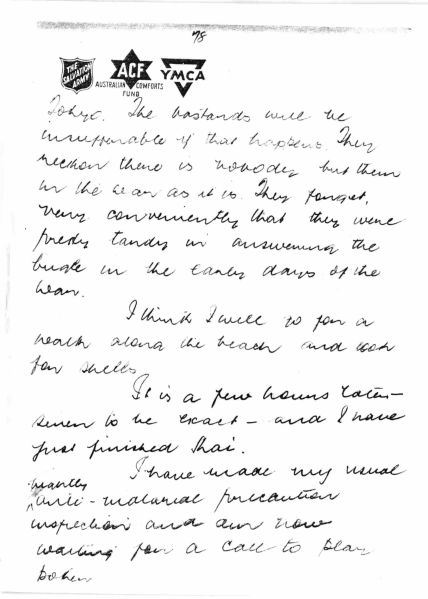 78
THE SALVATION ARMY
ACF
AUSTRALIAN COMFORTS FUND
YMCA
Tokyo. The bastards will be
insufferable if that happens. They
reckon there is nobody but them
in the war as it is. They forget,
very conveniently that they were
pretty tardy in answering the
bugle in the early days of the
war.
I think I will go for a
walk along the beach and look
for shells
It is a few hours later –
seven to be exact – and I have
just finished
I have made my usual
nightly
anti-malarial precaution
inspection and am now
waiting for a call to play
poker